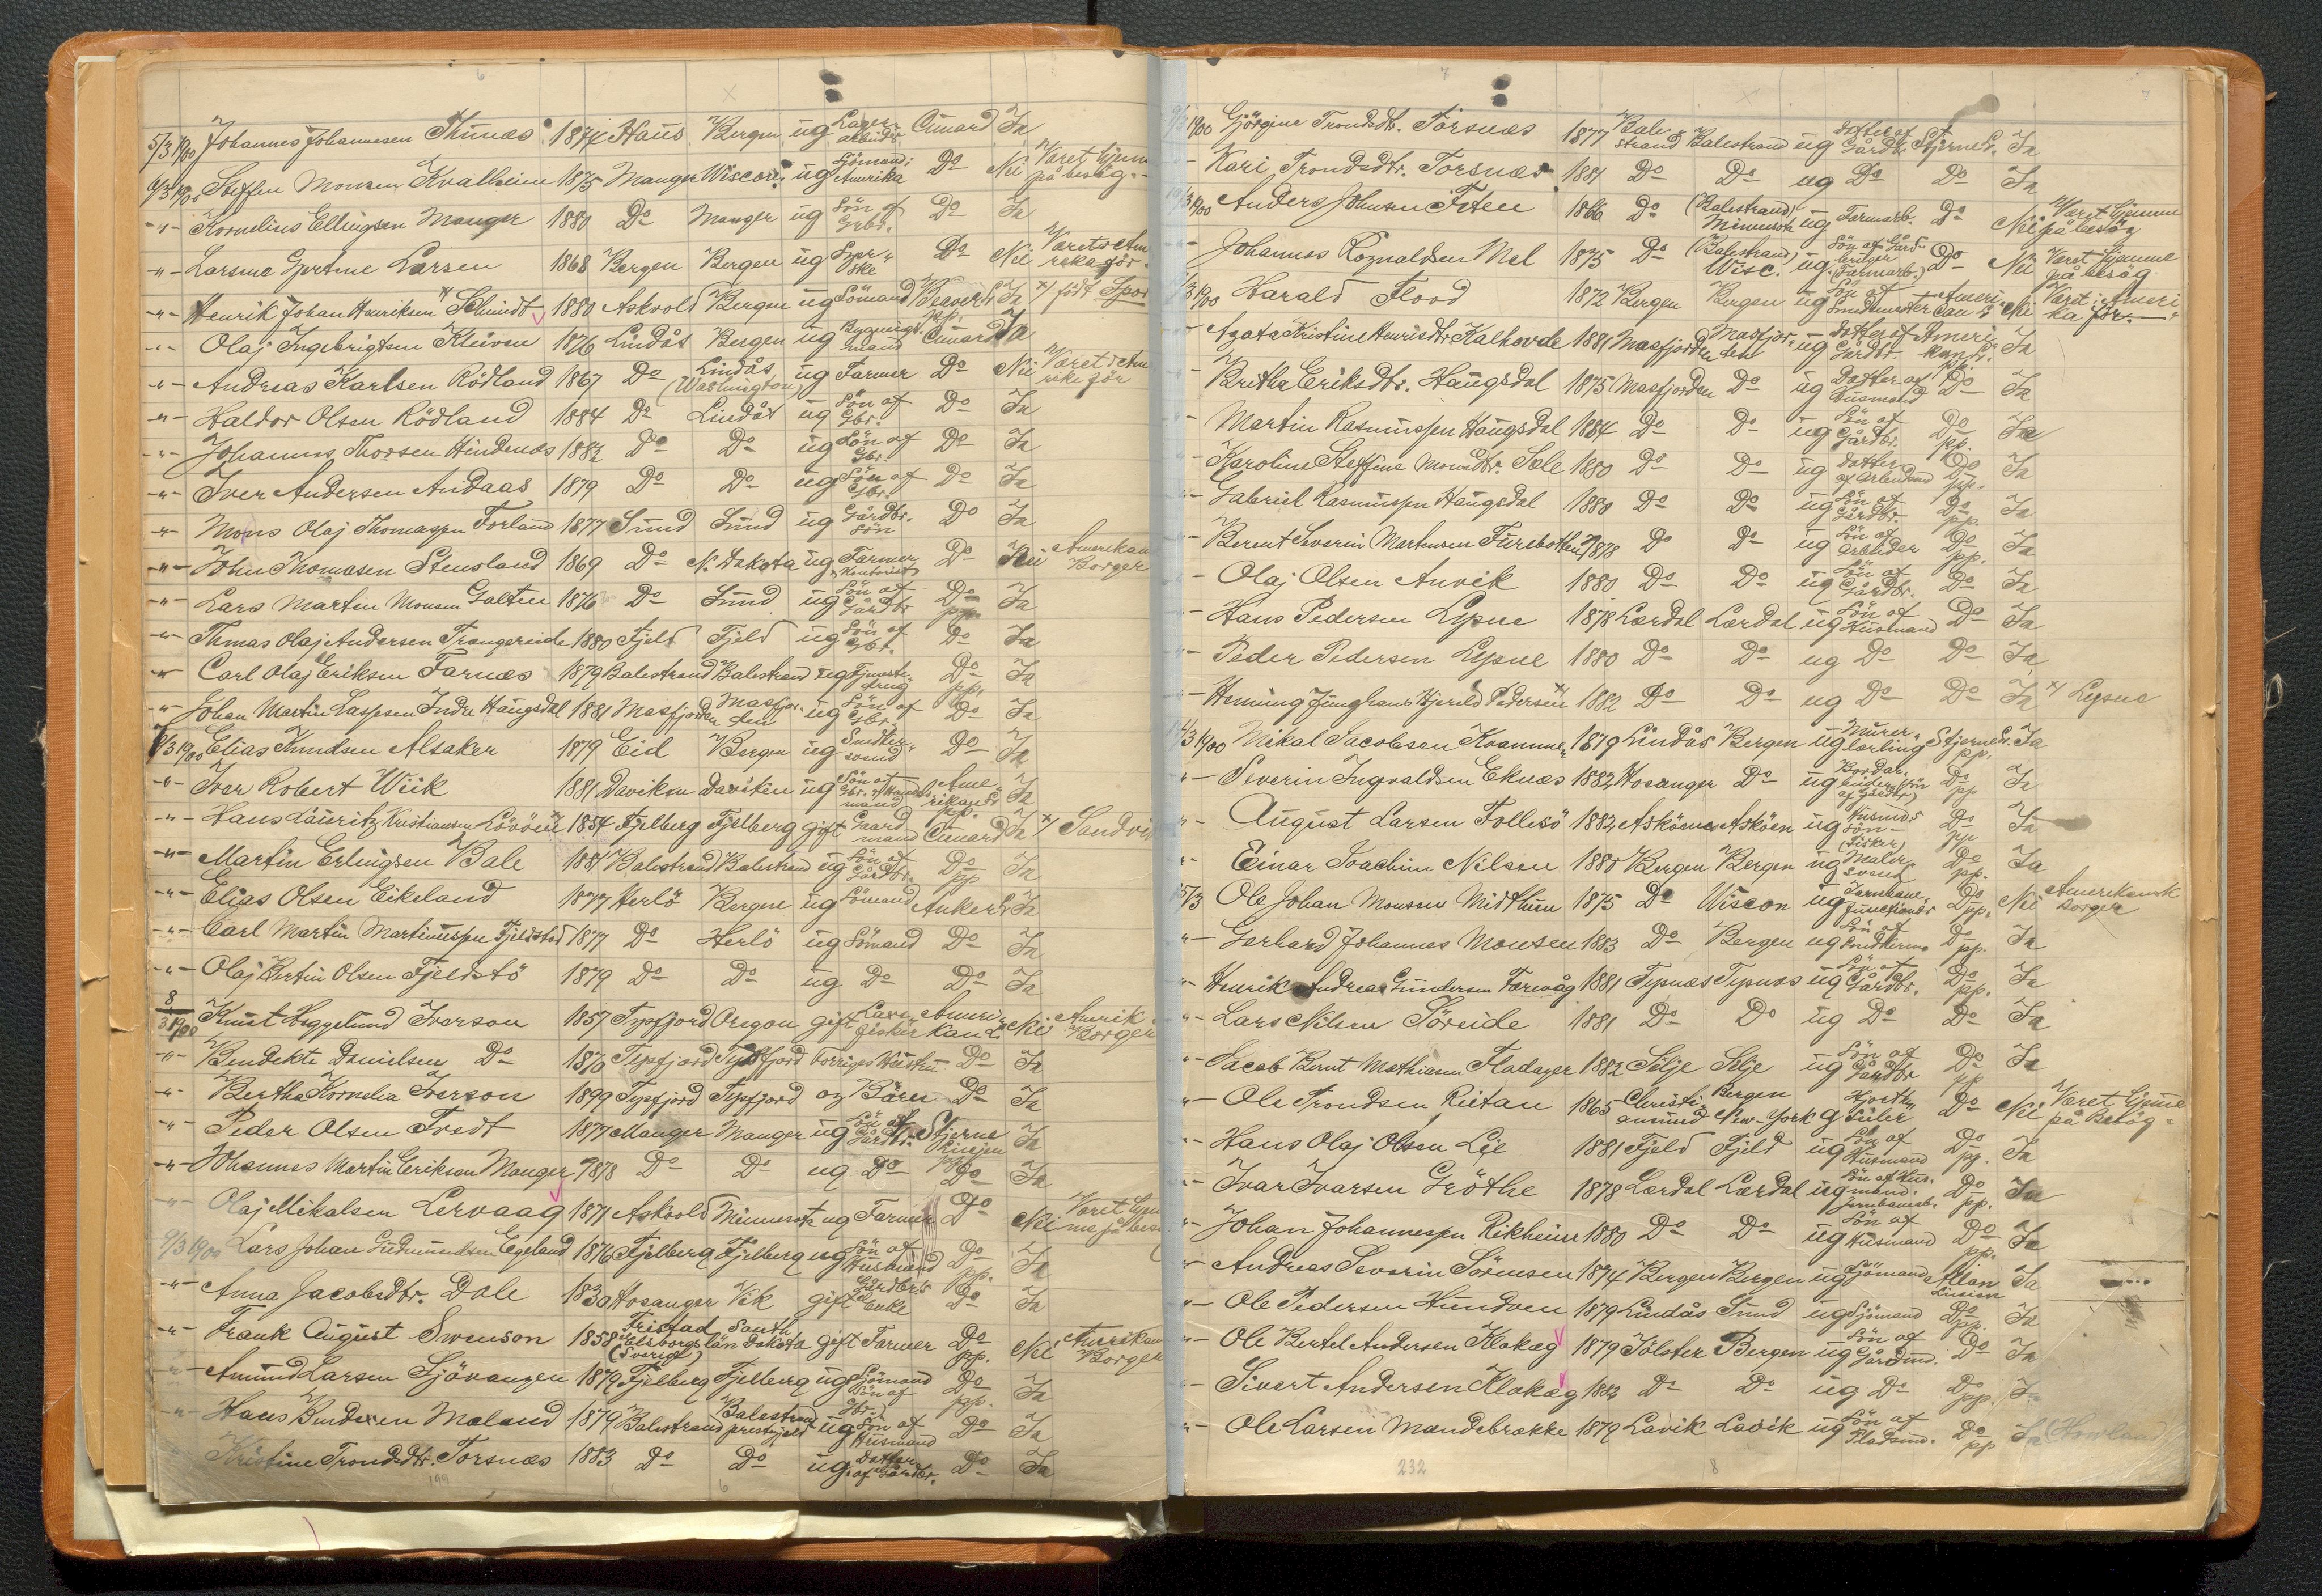 5/3 1900 Johannes Johannesen Thunæs 1874 Haus Bergen ug Lager arbeider Cunard Ja
6/3 1900 Steffen Monsen Kvalheim 1875 Manger Wiscon. ug Sömand i Amerika Do Nei Været hjemme på besög
-"- Kornelius Ellingsen Manger 1880 Do Manger ug Sön af Grbr. Do Ja
-"- Larsine Gjertine Larsen 1868 Bergen Bergen ug Syerske Do Nei Været i Amerika för
-"- Henrik Johan Henriksen x) Schmidt 1880 Askvold Bergen ug Sömand Beaver L. Ja x) födt
-"- Olaj Ingebrigtsen Kleiven 1876 Lindås Bergen ug Bygningsmand Cunard pp. Ja
-"- Andreas Karlsen Rödland 1867 Do Lindås (Washington) ug Farmer Do Nei Været i Amerika för
-"- Haldor Olsen Rödland 1884 Do Lindås ug Sön af Gbr. Do Ja
-"- Johannes Thorsen Hindenes 1882 Do Do ug Sön af Gbr. Do Ja
-"- Iver Andersen Andaas 1879 Do Do ug Sön af Gbr. Do Ja
-"- Mons Olaj Thomassen Forland 1877 Sund Sund ug Gårdbr. Sön Do Ja
-"- John Thomasen Stensland 1869 Do N. Dakota ug Farmer Kontorist Do Nei Amerikan Borger
-"- Lars Martin Monsen Golten 1876 Do Sund ug Sön af Gårdbr Do pp. Ja
-"- Thmas Olaj Andersen Trangereide 1880 Fjeld Fjeld ug Sön af Gbr. Do Ja
-"- Carl Olaj Eriksen Farnæs 1879 Balestrand Balestrand ug Tjenestedreng Do pp. Ja
-"- Johan Martin Lassesen Indre Haugsdal 1881 Masfjorden Masfjorden ug Sön af Gbr. Do Ja
8/3 1900 Elias Knudsen Alsaker 1879 Eid Bergen ug Smedsvend Do Ja
-"- Ivar Robert Wiik 1881 Daviken Daviken ug Sön af Gbr. Amerikan L. pp. Ja
-"- Hans Lauritz Kristiansen Lövöen x) 1854 Fjelberg Fjelberg gift Gaardmand Cunard Ja x)
-"- Martin Erlingsen Bale 1881 Balestrand Balestrand ug Sön af Gårdbr. Do pp Ja
-"- Elias Olsen Eikeland 1877 Herlö Bergen ug Sömand Anker L Ja
-"- Carl Martin Martinussen Fjeldstad 1877 Do Herlö ug Sömand Do Ja
-"- Olaj Bertin Olsen Fjeldstö 1879 Do Do ug Do Do Ja
8/3 1900 Knut Heggelund Iverson 1857 Tysfjord Oregon gift Laxefisker Amerikan L. Nei Amerik. Borger
-"- Bendekte Danielsen Do 1870 Tysfjord Tysfjord Forriges Hustru Do Ja
-"- Bertha Kornelia Iverson 1899 Tysfjord Tysfjord og Börn Do Ja
-"- Peder Olsen Tvedt 1877 Manger Manger ug Sön af Gårdbr. Stjerne Linjen Ja
-"- Johannes Martin Eriksen Manger 1878 Do Do ug Do Do Ja
-"- Olaj Mikalsen Lervaag 1871 Askvold Minnesota ug Farmer Do Nei Været hjemme på besög
9/3 1900 Lars Johan Gudmundsen Egeland 1876 Fjelberg Fjelberg ug Sön af Husmand Do pp. Ja
-"- Anna Jacobsdtr. Dale 1830 Hosanger Vik gift Gårdbr's Enke Do Ja
-"- Frank August Swenson 1858 Fristad Elfsborgs län (Sverige) South Dakota gift Farmer Do pp. Nei Amerikan Borger
-"- Amund Larsen Sjövangen 1879 Fjelberg Fjelberg ug Sjömand Sön af Gbr. Do pp. Ja
-"- Hans Bendixen Mæland 1879 Balestrand Balestrand prestegjeld ug Sön af Husmand Do Ja
Kristine Trondsdtr. Torsnæs 1883 Do Do ug Datter af Gårdbr. Do Ja
199
9/3 1900 Gjörgine Trondsdtr. Torsnæs 1877 Balestrand Balestrand ug Datter af Gårdbr. Stjerne L. Ja
- Kari Trondsdtr. Torsnæs 1881 Do Do ug Do Do Ja
10/3 1900 Anders Johnsen Feten 1866 Do (Balestrand) Minnesota ug Farmarb. Do Nei Været hjemme på besög
- Johannes Rognaldsen Mel 1875 Do (Balestrand) Wisc. ug Sön af Gårdbruger (Farmarb.) Do Nei Været hjemme på besög
1900 Harald Flood 1872 Bergen Bergen ug Sön af Smedmester Amerikan L Nei Været i Amerika för
- Agata Kristine Henriksdtr Kalhovde 1881 Masfjorden Masfjorden ug Datter af Gårdbr. Amerikan L. pp. Ja
- Britha Eriksdtr. Haugsdal 1875 Masfjorden Do ug Datter af Husmand Do Ja
- Martin Rasmussen Haugsdal 1884 Do Do ug Sön af Gårdbr. Do pp. Ja
- Karoline Steffine Monsdtr. Sole 1880 Do Do ug Datter af Arbeidmd Do pp. Ja
- Gabriel Rasmussen Haugsdal 1880 Do Do ug Sön af Gårdbr. Do pp. Ja
- Berent Severin Martensen Furebotten 1878 Do Do ug Sön af Arbeider Do pp. Ja
- Olaj Olsen Anvik 1880 Do Do ug Sön af Gårdbr. Do Ja
- Hans Pedersen Lysne 1878 Lærdal Lærdal ug Sön af Husmand Do Ja
- Peder Pedersen Lysne 1880 Do Do ug Do Do Ja
- Henning Junghans Hjerild Pedersen x) 1882 Do Do ug Do Do Ja x) Lysne
14/3 1900 Mikal Jacobsen Kvamme 1879 Lindås Bergen ug Murerlærling Stjerne L. pp. Ja
"- Severin Ingvaldsen Eknæs 1882 Hosanger Do ug Bordarbeider (Sön af Gårdbr) Do pp Ja
"- August Larsen Follesö 1882 Asköen Asköen ug Husmds Sön (Fisker) Do pp Ja
"- Einar Joachim Nilsen 1880 Bergen Bergen ug Malersvend Do pp. Ja
15/3 Ole Johan Monsen Midthun 1875 Do Wiscon ug Jernbanefunctionær Do pp. Nei Amerikansk borger
"- Gerhard Johannes Monsen 1883 Do Bergen ug Sön af Do pp. Ja
"- Henrik Andreas Gundersen Færevåg 1881 Tysnæs Tysnæs ug Sön af Gårdbr. Do pp. Ja
"- Lars Nilsen Söreide 1881 Do Do ug Do Do Ja
"- Jacob Bernt Mathiasen Fladager 1882 Selje Selje ug Sön af Gårdbr Do pp Ja
"- Ole Trondsen Reitan 1865 Christiansund Bergen New-York g Do Nei Været hjemme på Besög
"- Hans Olaj Olsen Lie 1881 Fjeld Fjeld ug Sön af Husmand Do pp. Ja
"- Ivar Ivarsen Gröthe 1878 Lærdal Lærdal ug Sön af Husmand. Jernbanearb. Do pp. Ja
"- Johan Johannessen Rikheim 1880 Do Do ug Sön af Husmand Do pp. Ja
"- Andreas Severin Sörensen 1874 Bergen Bergen ug Sjömand Allan Linien Ja
"- Ole Pedersen Hundven 1879 Lindås Sund ug Sjömand Do pp. Ja
"- Ole Bertel Andersen Klakæg 1879 Jölster Bergen ug Sön af Gårdmd. Do Ja
"- Sivert Andersen Klakæg 1882 Do Do ug Do Do pp. Ja
"- Ole Larsen Mandebrække 1879 Lavik Lavik ug Sön af Pladsmd. Do pp Ja (Howland)
232 8